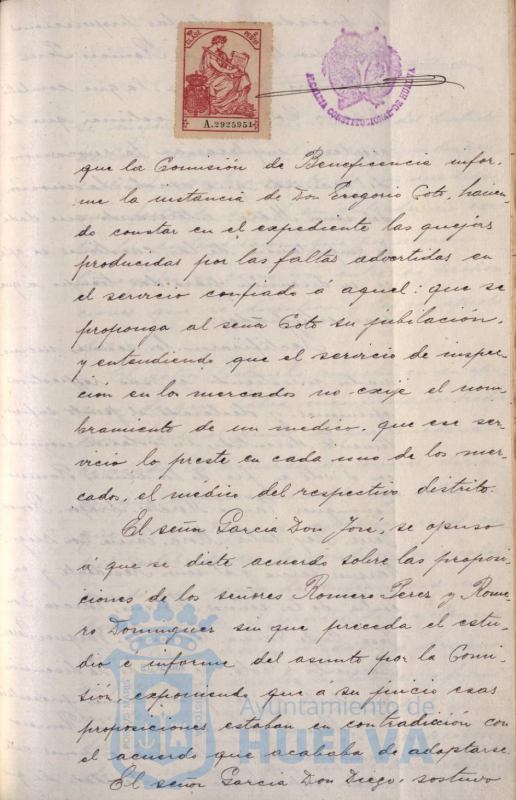 A.2925951
ALCALDIA CONSTITUCIONAL DE HUELVA
que la Comisión de Beneficencia infor-
me la instancia de Don Gregorio Coto, hacien-
do constar en el expediente las quejas
producidas por las faltas advertidas en
el servicio confiado á aquel: que se
proponga al seña Coto su jubilación,
y entendiendo que el servicio de inspec-
ción en los mercados no exije el nom-
bramiento de un medico, que ese ser-
vicio lo preste en cada uno de los mer-
cados, el médico del respectivo distrito.
El señor Garcia Don José, se opuso
á que se dicte acuerdo sobre las proposi-
ciones de los señores Romero Perez y Rome-
ro Dominguez sin que preceda el estu-
dio e informe del asunto por la Comi-
sión, exponiendo que a su juicio esas
proposiciones estaban en contradicción con
el acuerdo que acababa de adoptarse.
El señor Garcia Don Diego, sostuvo
Ayuntamiento de
HUELVA